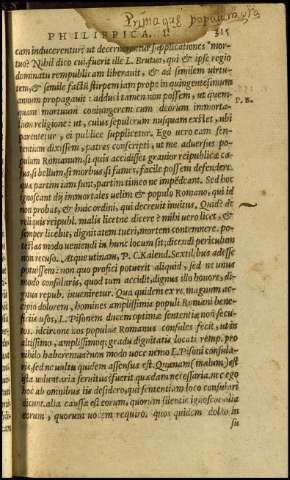 PHILIPPICA. I. 315
cam inducerentur ut decernerentur supplicationes mor
tuo? Nihil dico cui. fuerit ille L. Brutus, qui & ipse regio
dominatu rempublicam liberauit, & ad similem virtu-
tem, & simile factũ stirpem iam prope in quingentesimum
annum propagauit: adduci tamen non possem, ut quem-
quam mortuum coniungerem cum deorum immorta-
lium religione: ut, cuius sepulcrum nusquam exstet, ubi
parentetur, ei publice supplicetur. Ego uero eam sen-
tentiam dixissem, patres conscripti, ut me aduersus po-
pulum Romanum, si quis accidisset grauior reipublicæ ca-
sus, si bellum, si morbus, si fames, facile possem defendere.
quæ partim iam sunt, partim timeo ne impẽdeant. Sed hoc
ignoscant dij immortales uelim & populo Romano, qui id
non probat, & huic ordini, qui decreuit inuitus. Quid? de
reliquis reipubl. malis licetne dicere? mihi uero licet, &
semper licebit, dignitatem tueri, mortem contemnere. po-
testas modo ueniendi in hunc locum sit; dicendi periculum
non recuso. Atque utinam, P. C. Kalend. Sextilibus adesse
potuissem: non quo profici potuerit aliquid, sed ne unus
modo consularis, quod tum accidit, dignus illo honore, di-
gnus repub. inueniretur. Qua quidem ex re magnum ac-
cipio dolorem, homines amplissimis populi Romani bene-
ficijs usos, L. Pisonem ducem optimæ sententiæ non secu-
tos. idcirco ne nos populus Romanus consules fecit, ut in
altissimo, amplissimoq; gradu dignitatis locati remp. pro
nihilo haberemus? non modo uoce nemo L. Pisoni consula-
ris, sed ne uultu quidem assensus est. Quænam (malum) est
ista uoluntaria seruitus? fuerit quædam necessaria. ne ego
hoc ab omnibus iis desidero, qui sententiam loco consulari
dicunt. alia caussa est eorum, quorum silentio ignosco: alia
eorum, quorum uocem requiro. quos quidem doleo in
su
P. B.